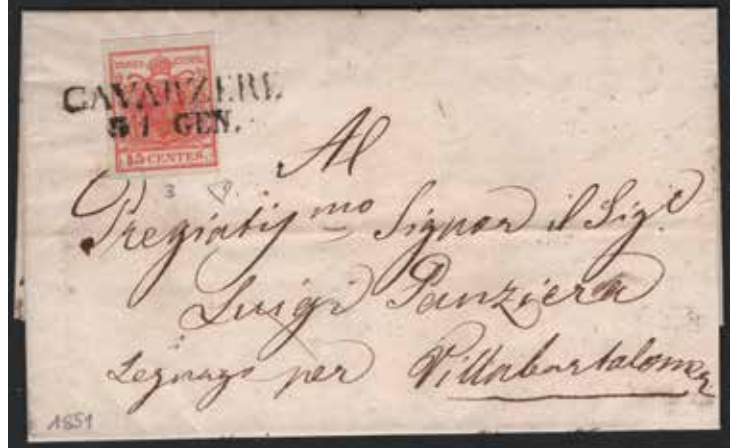 CAVARZERE
31 GEN.
15 CENTES.
3
Al
Pregiatissmo Signor il Sigr
Luigi Panziera
Legnago per Villabartalomea
1851